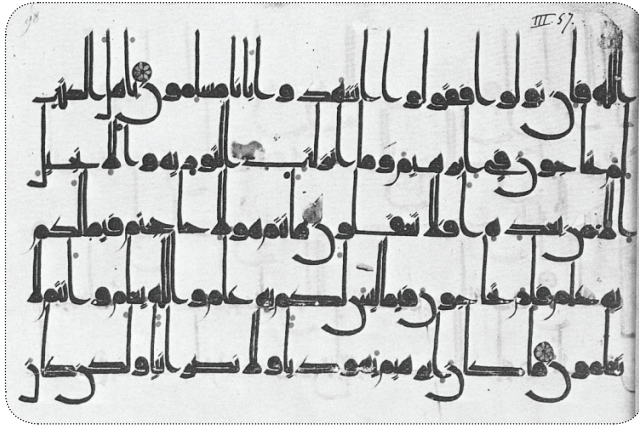 98 III.57.
الله فان تولوا فقولوا اشهدوا بانا مسلمون ياهل الكتب
لم تحاجون في ابرهيم وما انزلت التوريه والانجيل
الا من بعده افلا تعقلون هانتم هولا حاججتم فيما لكم
به علم فلم تحاجون فيما ليس لكم به علم والله يعلم وانتم لا
تعلمون ما كان ابرهيم يهوديا ولا نصرانيا ولكن كان